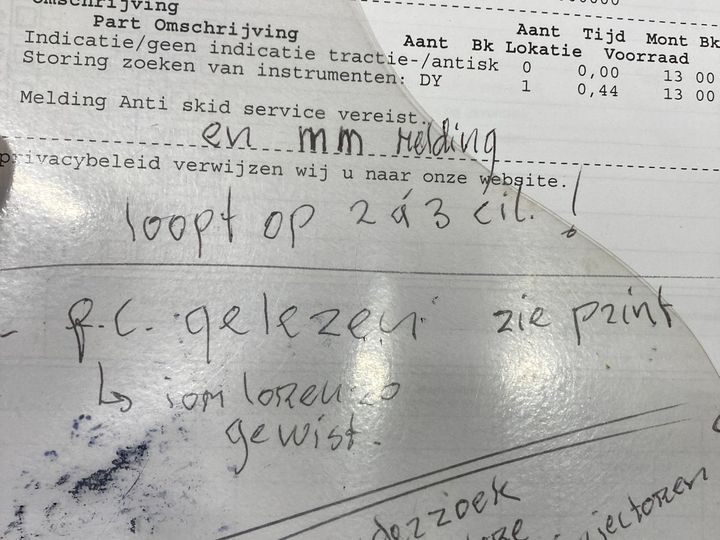 Omschrijving
Part Omschrijving Aant Bk Aant Lokatie Tijd Voorraad Mont Bk
Indicatie/geen indicatie tractie-/antisk 0 0,00 13 00
Storing zoeken van instrumenten: DY 1 0,44 13 00
Melding Anti skid service vereist.
en mm melding
privacybeleid verwijzen wij u naar onze website.
loopt op 2 á 3 cil. !
- f.c. gelezen zie print
↳ iom lorenzo
gewist.